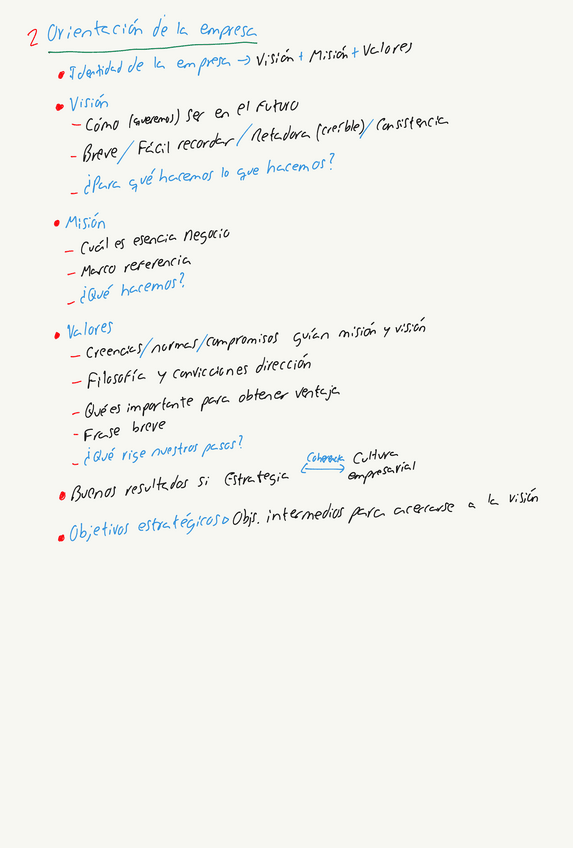 2 Orientación de la empresa
• Identidad de la empresa → Visión + Misión + Valores
• Visión
– Cómo (queremos) ser en el futuro
– Breve / Fácil recordar / Retadora (creíble) / Consistencia
– ¿Para qué hacemos lo que hacemos?
• Misión
– Cuál es esencia negocio
– Marco referencia
– ¿Qué hacemos?
• Valores
– Creencias/normas/compromisos guían misión y visión
– Filosofía y convicciones dirección
– Qué es importante para obtener ventaja
– Frase breve
– ¿Qué rige nuestros pasos?
• Buenos resultados si Estrategia ↔ Coherencia Cultura empresarial
• Objetivos estratégicos Objs. intermedios para acercarse a la visión